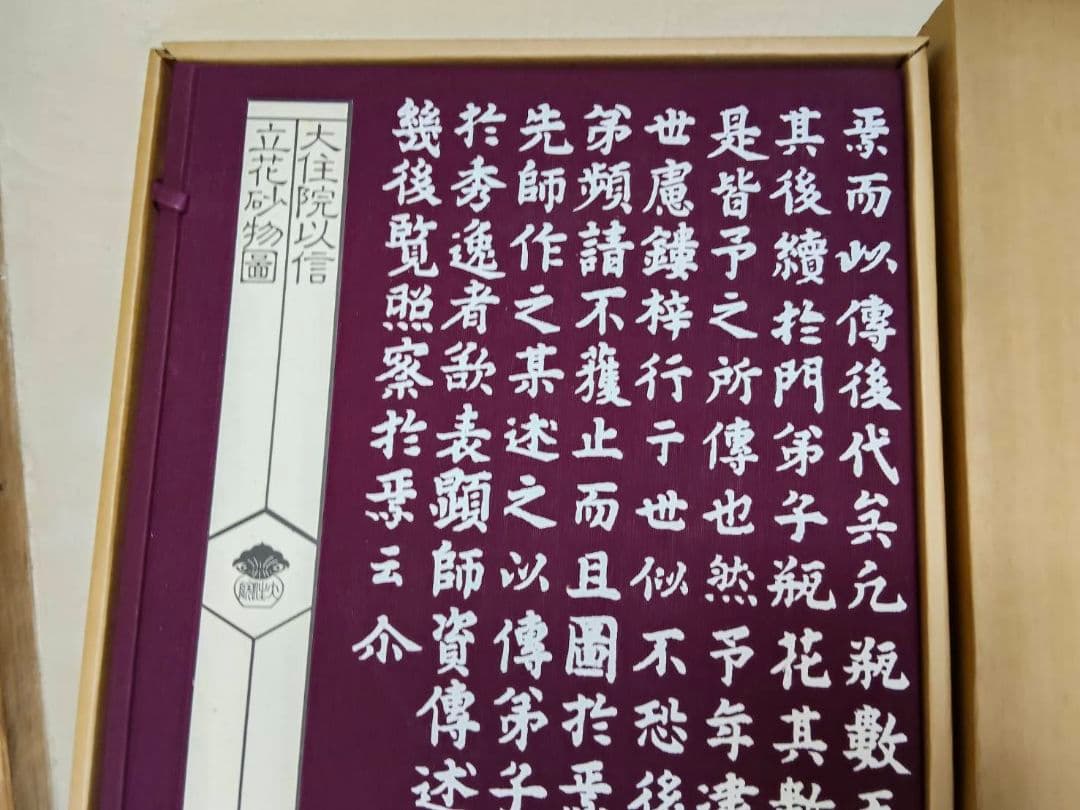 焉而以傳後代矣凡瓶數
其後續於門弟子瓶花其數
是皆予之所傳也然予年
世慮鏤梓行于世似不恐後
弟頻請不獲止而且圖於焉
先師作之某述之以傳弟子
於秀逸者欲表顕師資傳述
幾後覧照察於焉云尒
大住院以信
立花砂物圖